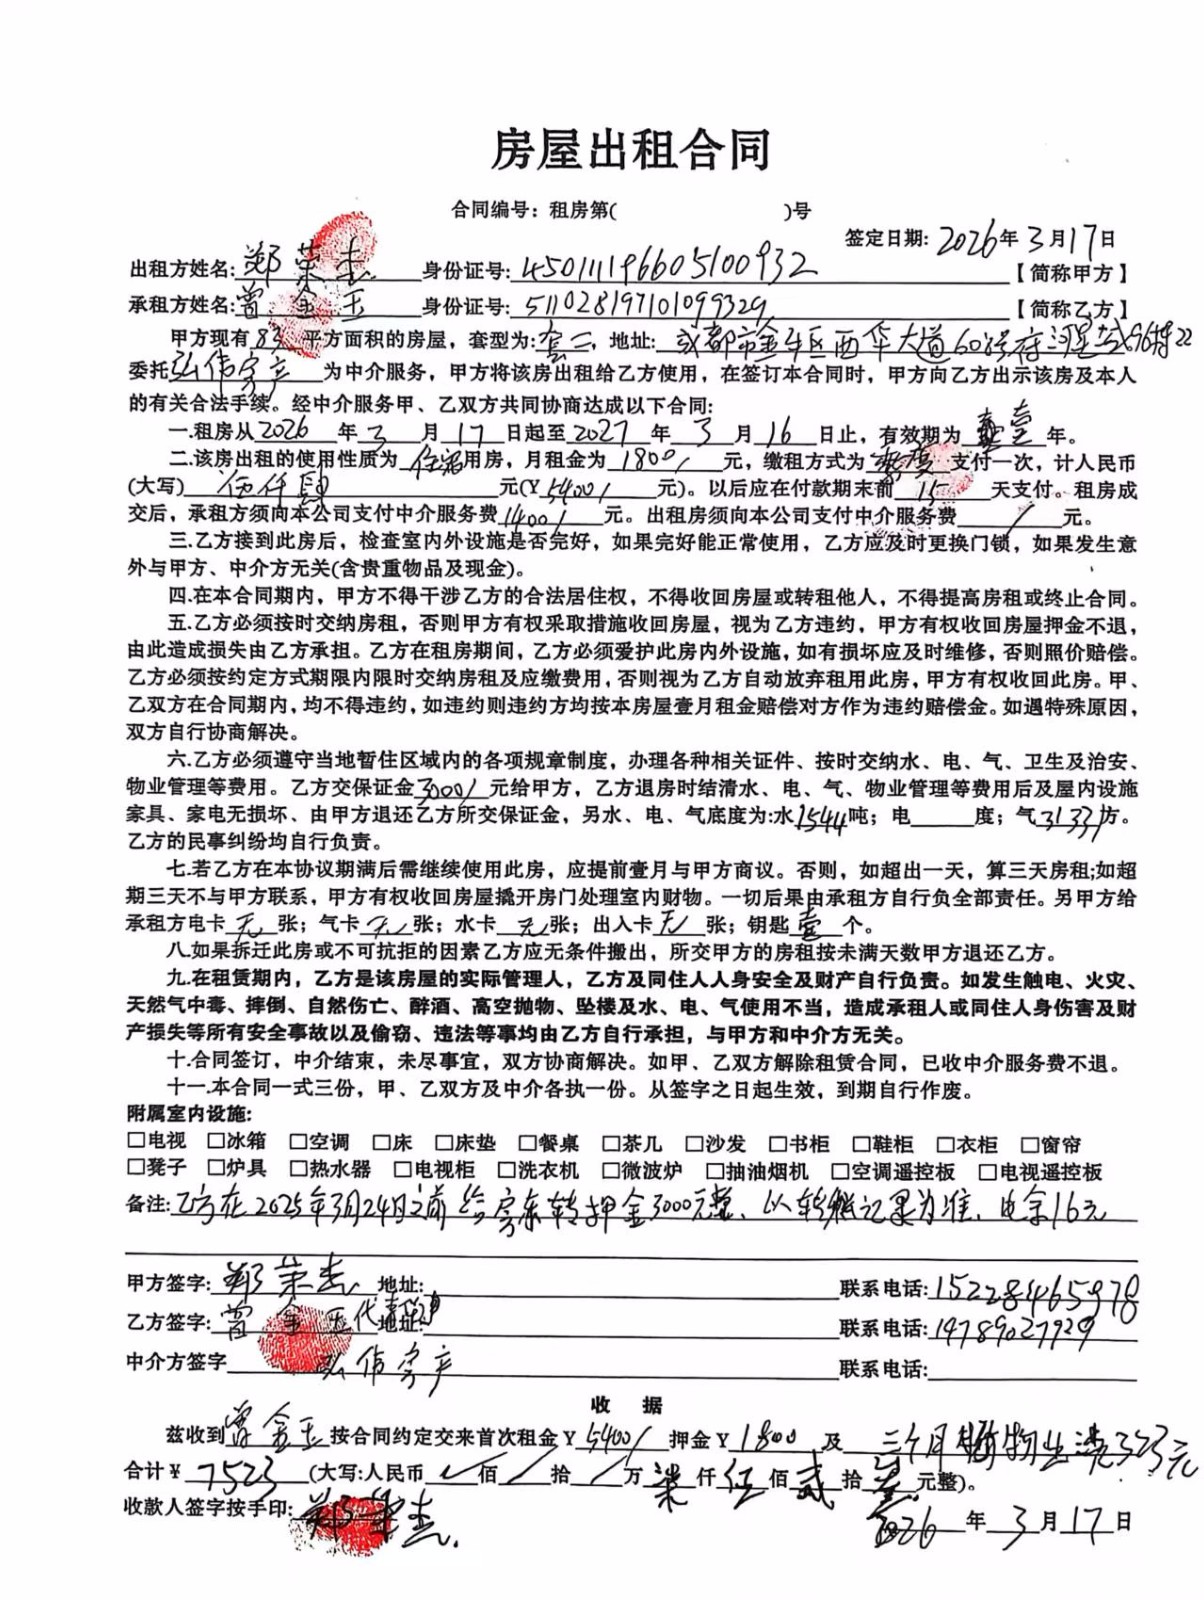 房屋出租合同
合同编号：租房第(　　　)号
签定日期: 2026年3月17日
出租方姓名: 郑荣志 身份证号: 450111196605100932 【简称甲方】
承租方姓名: 曾金玉 身份证号: 511028197101099329 【简称乙方】
甲方现有 平方面积的房屋，套型为: 套二，地址: 成都市金牛区西华大道608号府河星城
委托弘伟房产为中介服务，甲方将该房出租给乙方使用，在签订本合同时，甲方向乙方出示该房及本人
的有关合法手续。经中介服务甲、乙双方共同协商达成以下合同:
一.租房从2026年3月17日起至2027年3月16日止，有效期为壹年。
二.该房出租的使用性质为住宿用房，月租金为1800/元，缴租方式为 支付一次，计人民币
(大写)伍仟肆 元(¥5400/元)。以后应在付款期末前15天支付。租房成
交后，承租方须向本公司支付中介服务费1400/元。出租房须向本公司支付中介服务费/元。
三.乙方接到此房后，检查室内外设施是否完好，如果完好能正常使用，乙方应及时更换门锁，如果发生意
外与甲方、中介方无关(含贵重物品及现金)。
四.在本合同期内，甲方不得干涉乙方的合法居住权，不得收回房屋或转租他人，不得提高房租或终止合同。
五.乙方必须按时交纳房租，否则甲方有权采取措施收回房屋，视为乙方违约，甲方有权收回房屋押金不退，
由此造成损失由乙方承担。乙方在租房期间，乙方必须爱护此房内外设施，如有损坏应及时维修，否则照价赔偿。
乙方必须按约定方式期限内限时交纳房租及应缴费用，否则视为乙方自动放弃租用此房，甲方有权收回此房。甲、
乙双方在合同期内，均不得违约，如违约则违约方均按本房屋壹月租金赔偿对方作为违约赔偿金。如遇特殊原因，
双方自行协商解决。
六.乙方必须遵守当地暂住区域内的各项规章制度，办理各种相关证件、按时交纳水、电、气、卫生及治安、
物业管理等费用。乙方交保证金3000/元给甲方，乙方退房时结清水、电、气、物业管理等费用后及屋内设施
家具、家电无损坏、由甲方退还乙方所交保证金，另水、电、气底度为:水1544吨；电　　度；气3133方。
乙方的民事纠纷均自行负责。
七.若乙方在本协议期满后需继续使用此房，应提前壹月与甲方商议。否则，如超出一天，算三天房租;如超
期三天不与甲方联系，甲方有权收回房屋撬开房门处理室内财物。一切后果由承租方自行负全部责任。另甲方给
承租方电卡无张；气卡无张；水卡无张；出入卡无张；钥匙壹个。
八.如果拆迁此房或不可抗拒的因素乙方应无条件搬出，所交甲方的房租按未满天数甲方退还乙方。
九.在租赁期内，乙方是该房屋的实际管理人，乙方及同住人人身安全及财产自行负责。如发生触电、火灾、
天然气中毒、摔倒、自然伤亡、醉酒、高空抛物、坠楼及水、电、气使用不当，造成承租人或同住人身伤害及财
产损失等所有安全事故以及偷窃、违法等事均由乙方自行承担，与甲方和中介方无关。
十.合同签订，中介结束，未尽事宜，双方协商解决。如甲、乙双方解除租赁合同，已收中介服务费不退。
十一.本合同一式三份，甲、乙双方及中介各执一份。从签字之日起生效，到期自行作废。
附属室内设施:
□电视 □冰箱 □空调 □床 □床垫 □餐桌 □茶几 □沙发 □书柜 □鞋柜 □衣柜 □窗帘
□凳子 □炉具 □热水器 □电视柜 □洗衣机 □微波炉 □抽油烟机 □空调遥控板 □电视遥控板
备注: 乙方在2025年3月24日之前给房东转押金3000元整、以转账记录为准、电余16元
甲方签字: 郑荣志 地址: 联系电话: 15228465978
乙方签字: 曾金玉代 地址: 联系电话: 14789027929
中介方签字 弘伟房产 联系电话:
收　据
兹收到曾金玉按合同约定交来首次租金¥5400/押金¥1800及三个月物业费323元
合计¥7523(大写:人民币/佰/拾/万柒仟伍佰贰拾叁元整)。
收款人签字按手印: 郑荣志 2026年3月17日